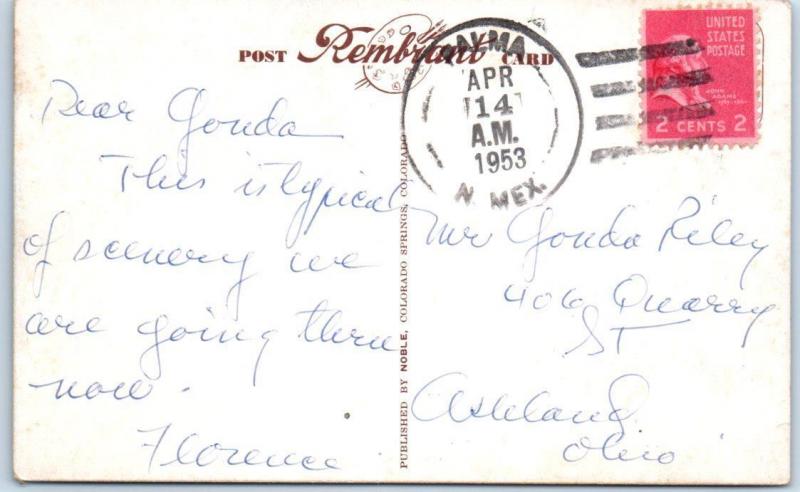 POST Rembrant CARD
ALMA
APR
14
A.M.
1953
N. MEX.
UNITED
STATES
POSTAGE
JOHN
ADAMS
2 CENTS 2
Dear Gonda
This is typical
of scenery we
are going thru
now.
Florence
PUBLISHED BY NOBLE, COLORADO SPRINGS, COLORADO
Mr Gonda Riley
406 Quarry
ST
Ashland
Ohio